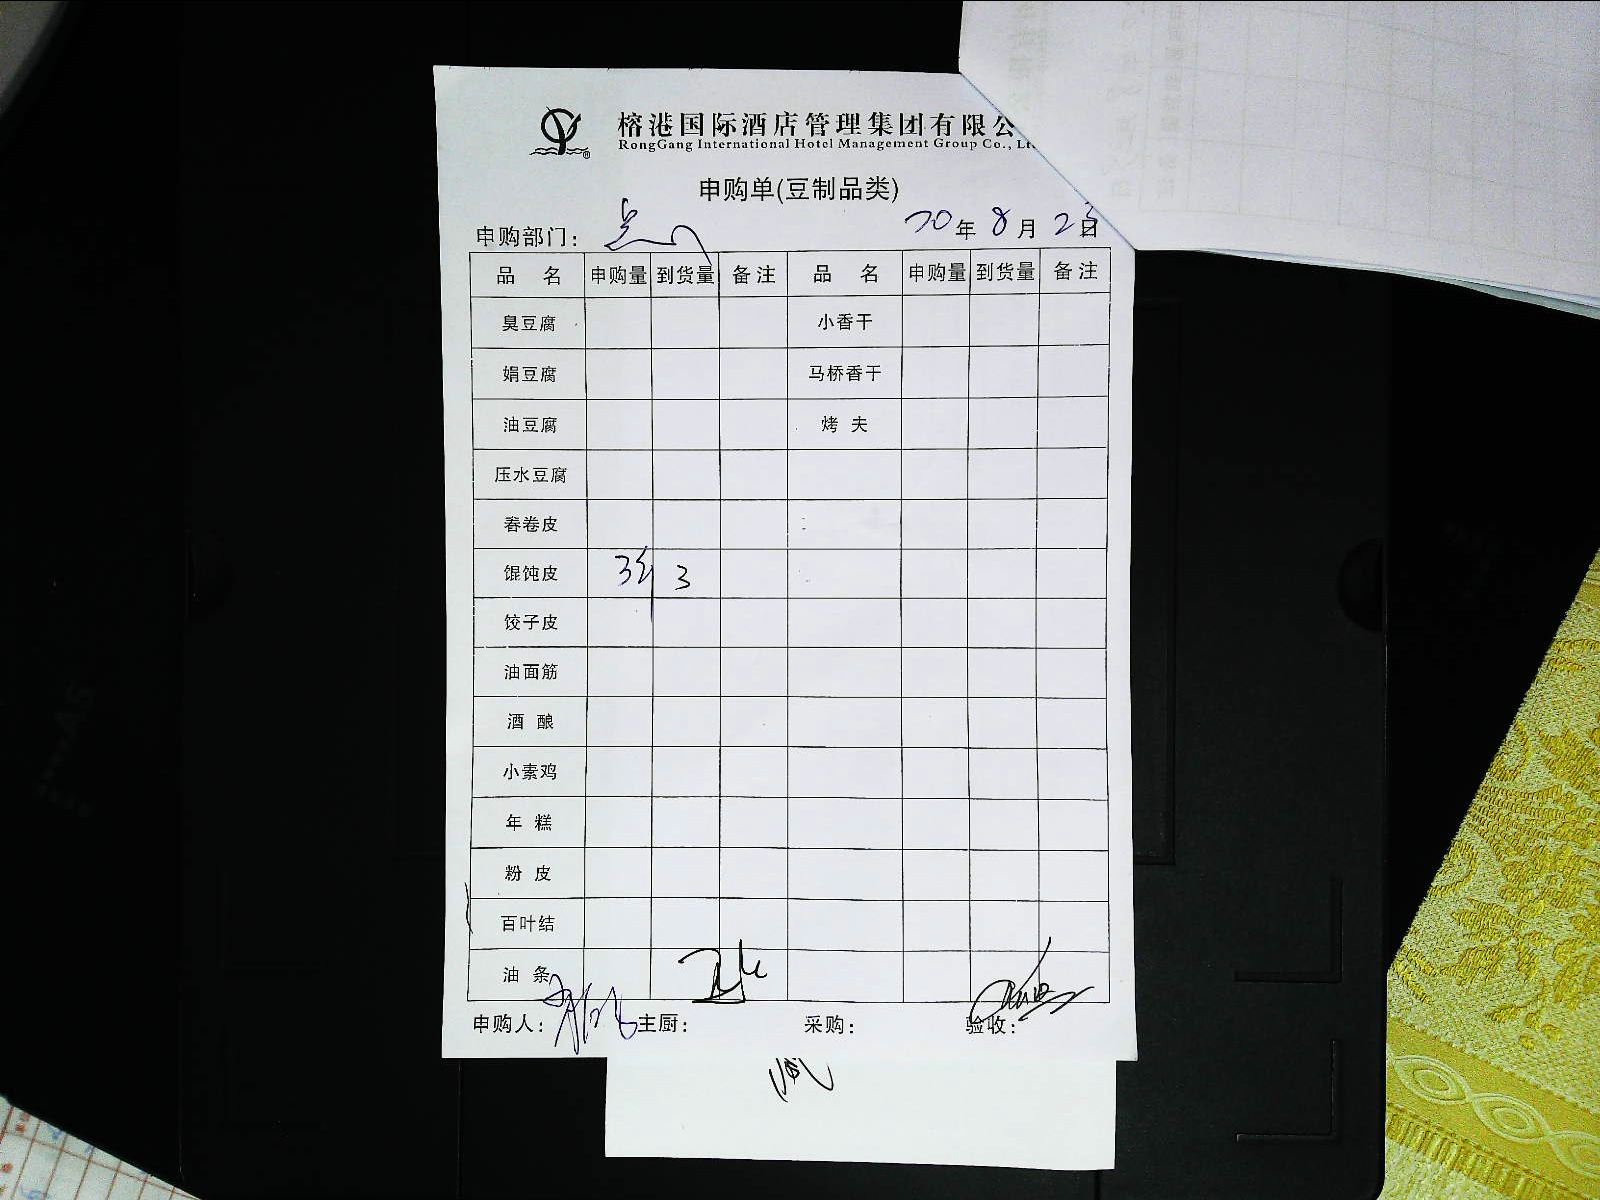 榕港国际酒店管理集团有限公
RongGang International Hotel Management Group Co., Lt
申购单(豆制品类)
申购部门: 点心 20年 8月 23日
品 名 申购量 到货量 备注 品 名 申购量 到货量 备注
臭豆腐 小香干
娟豆腐 马桥香干
油豆腐 烤 夫
压水豆腐
春卷皮
馄饨皮 3 3
饺子皮
油面筋
酒 酿
小素鸡
年 糕
粉 皮
百叶结
油 条
申购人: 主厨: 采购: 验收: